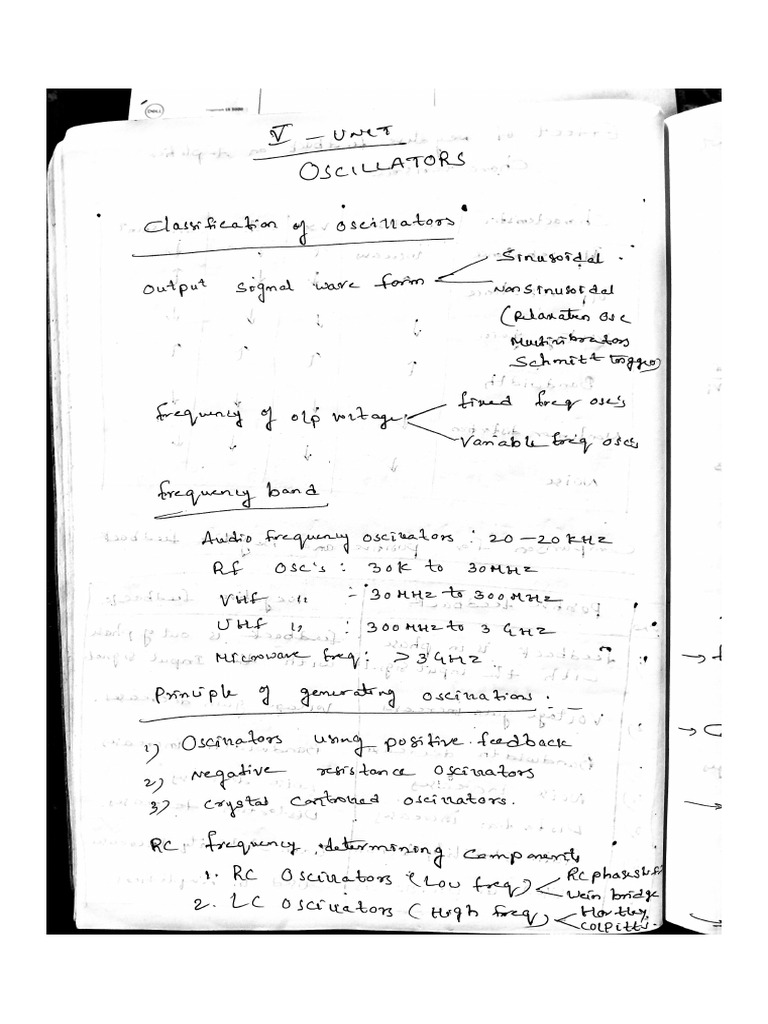 DELL
V - UNIT
OSCILLATORS
Classification of oscillators
Output signal wave form
Sinusoidal
Nonsinusoidal
(Relaxation Osc
Multivibrators
Schmitt trigger)
frequency of o/p voltage
fixed freq osc's
Variable freq oscs
frequency band
Audio frequency oscillators : 20 - 20KHZ
Rf OSC's : 30K to 30MHZ
VHF " - 30MHZ to 300MHZ
UHF " : 300MHZ to 3GHZ
Microwave freq: >3GHZ
Principle of generating oscillations : -
1) Oscillators using positive feedback
2) Negative resistance oscillators
3) Crystal controlled oscillators.
RC frequency determining components
1. RC oscillators (Low freq)
RC phaseshift
Wein bridge
2. LC oscillators (High freq)
Hartley
Colpitts.